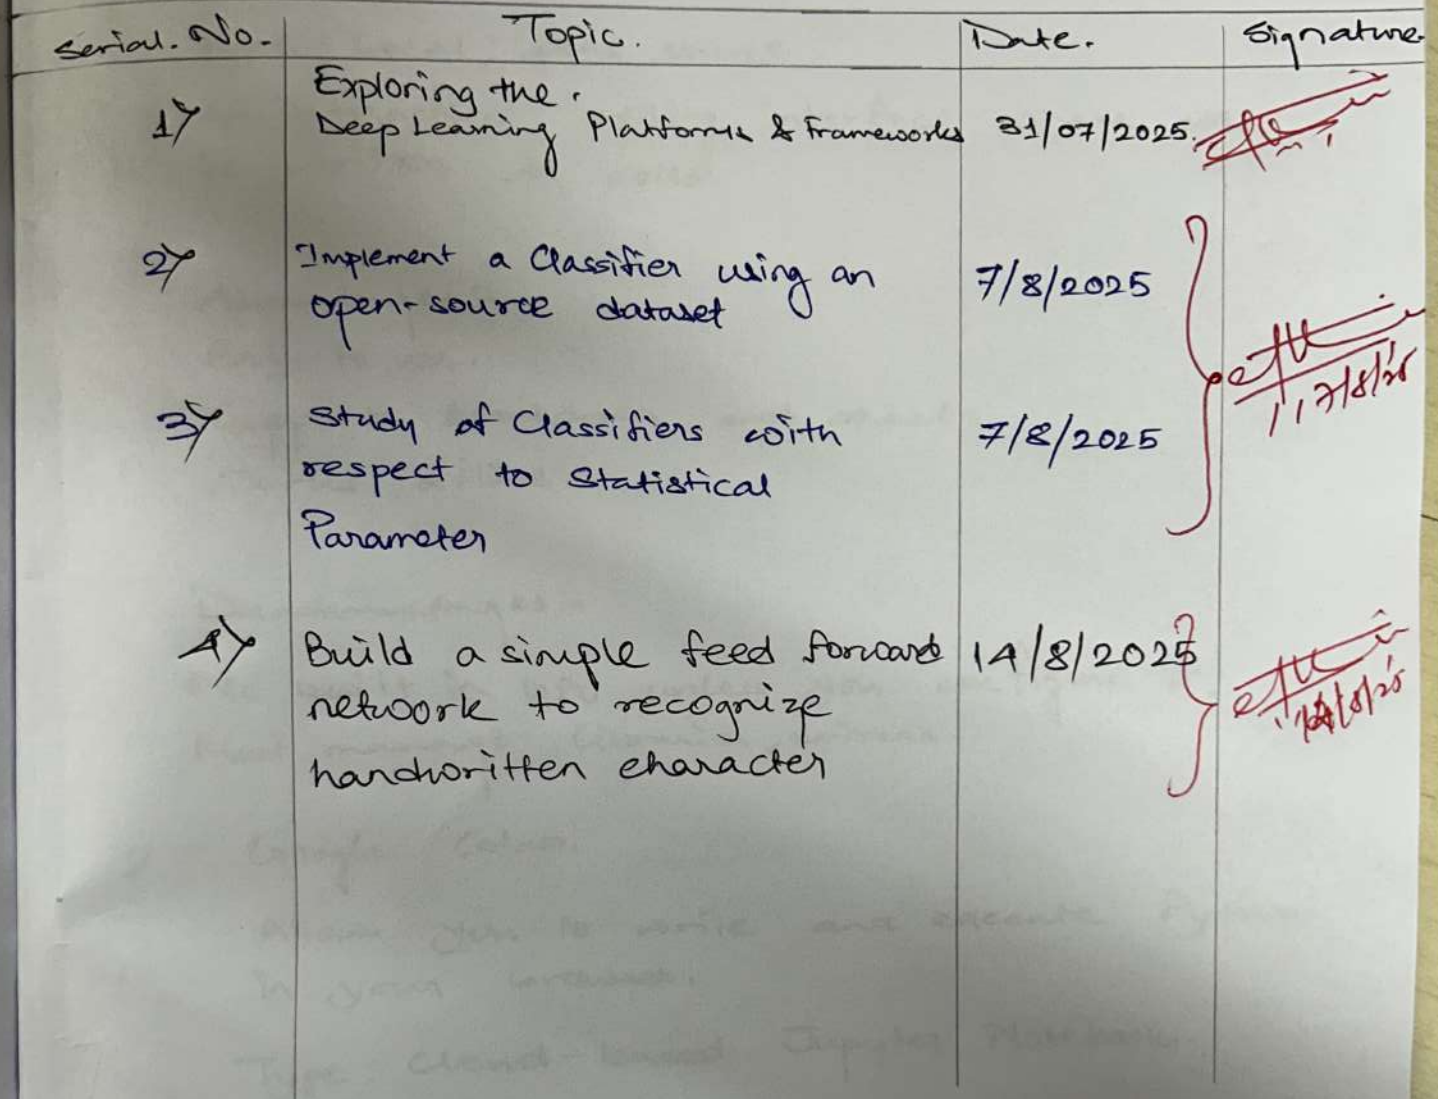 Serial. No. Topic. Date. Signature
1) Exploring the
Deep Learning Platforms & Frameworks 31/07/2025.
2) Implement a Classifier using an 7/8/2025
open-source dataset
7/8/25
3) Study of Classifiers with 7/8/2025
respect to Statistical
Parameter
4) Build a simple feed forward 14/8/2025
network to recognize 14/8/25
handwritten character